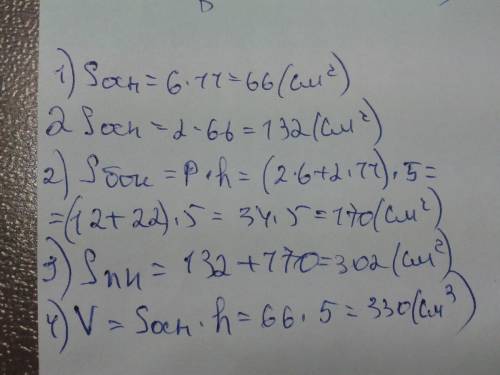 1) Sосн = 6 · 11 = 66 (см²)
2 Sосн = 2 · 66 = 132 (см²)
2) Sбок = P · h = (2·6 + 2·11) · 5 =
= (12 + 22) · 5 = 34 · 5 = 170 (см²)
3) Sпп = 132 + 170 = 302 (см²)
4) V = Sосн · h = 66 · 5 = 330 (см³)